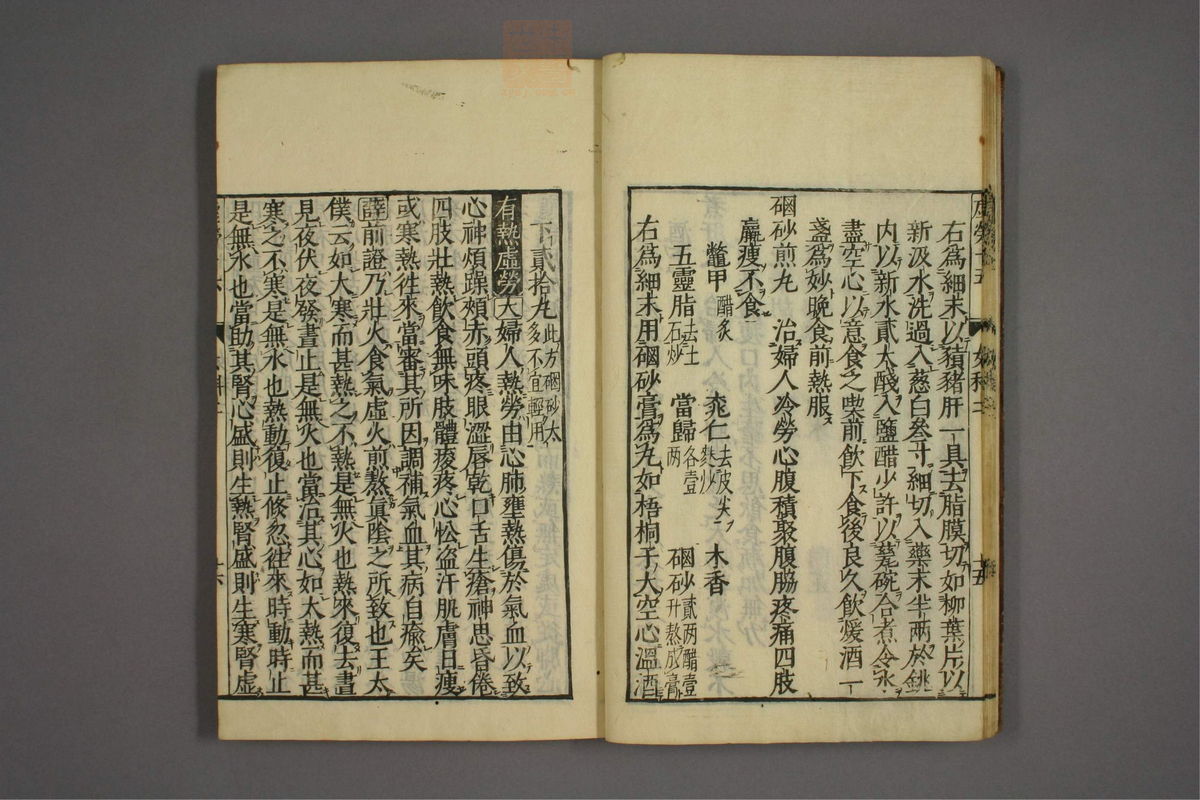 右爲細末以豬豬肝一具去脂膜切如柳葉片以
新汲水洗過入葱白叁寸細切入藥末半兩於銚
内以新水貳大醆入鹽醋少許以甆碗合煮令水
盡空心以意食之柴前飲下食後良久飲煖酒一
盞爲妙晚食前熱服
硇砂煎丸 治婦人冷勞心腹積聚腹脇疼痛四肢
羸瘦不食
鱉甲醋炙 桃仁去皮尖麩炒 木香
五靈脂去土石炒 當歸各壹两 硇砂貳两醋壹升熬成膏
右爲細末用硇砂膏爲丸如梧桐子大空心溫酒
下貳拾丸此方硇砂太多不宜輕用
有熱虛勞 大婦人熱勞由心肺壅熱傷於氣血以致
心神煩躁頰赤頭疼眼澀唇乾口舌生瘡神思昏倦
四肢壯熱飲食無味肢體痠疼心忪盗汗肌膚日瘦
或寒熱徃來當審其所因調補氣血其病自瘉矣
薛前證乃壯火食氣虛火煎熬眞陰之所致也王太
僕云如大寒而甚熱之不熱是無火也熱來復去晝
見夜伏夜發晝止是無火也當治其心如太熱而甚
寒之不寒是無水也熱動復止倏忽徃來時動時止
是無水也當助其腎心盛則生熱腎盛則生寒腎虛